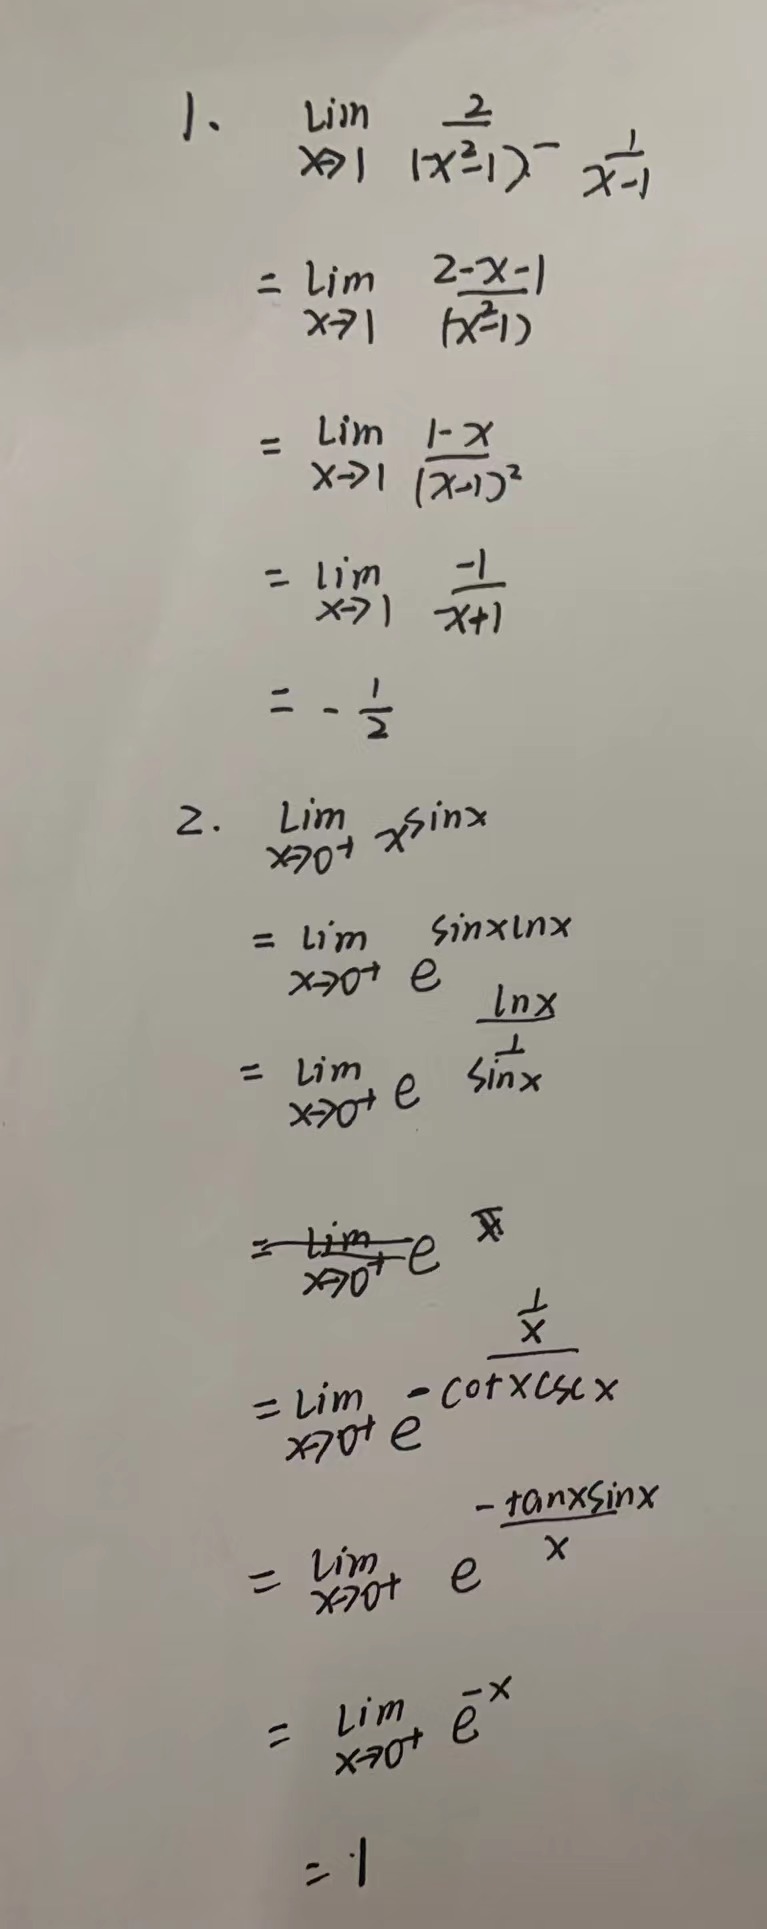 1. lim x→1 2/(x²-1) - 1/(x-1)
= lim x→1 (2-x-1)/(x²-1)
= lim x→1 (1-x)/(x-1)²
= lim x→1 -1/(x+1)
= -1/2
2. lim x→0+ x^sinx
= lim x→0+ e^(sinxlnx)
= lim x→0+ e^(lnx/(1/sinx))
= lim x→0+ e
= lim x→0+ e^(-(1/x)/(cotxcscx))
= lim x→0+ e^(-tanxsinx/x)
= lim x→0+ e^(-x)
= 1